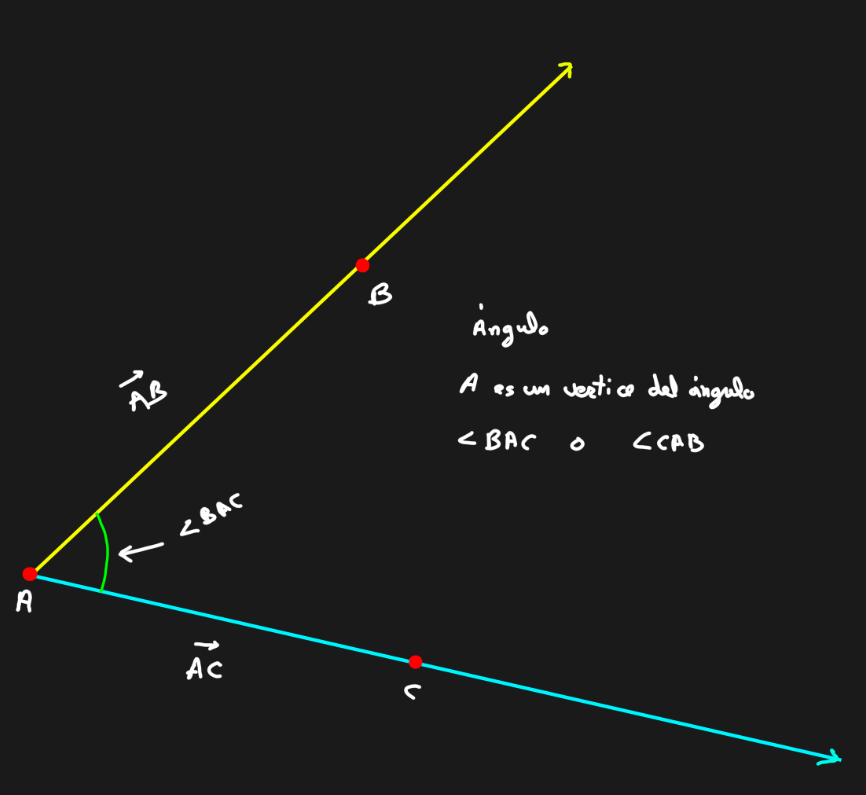 B
Ángulo
AB
A es un vertice del ángulo
∠BAC o ∠CAB
∠BAC
A
AC
C